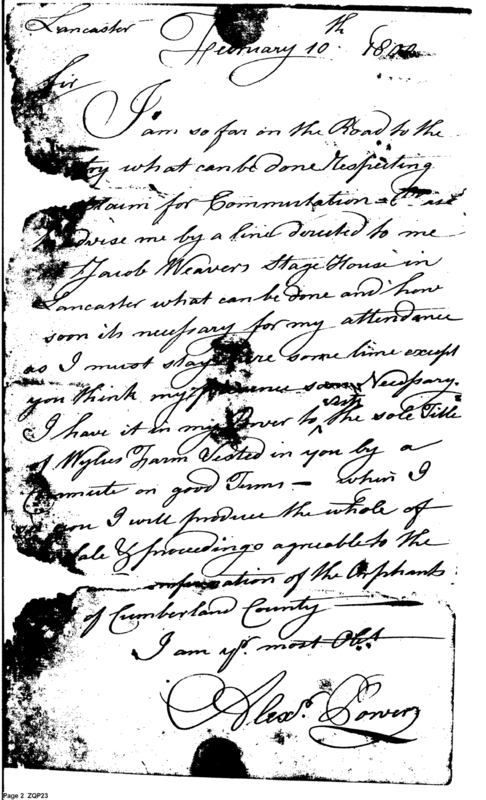 Lancaster
February 10th 1800
Sir
I am so far on the Road to the
try what can be done respecting
Claim for Commutation
advise me by a line directed to me
Jacob Weavers Stage House in
Lancaster what can be done and how
soon its necessary for my attendance
as I must stay here some time except
you think my presence soon Necessary.
I have it in my Power to the sole Title
of Wylies Farm Vested in you by a
on good Terms — when I
you I will produce the whole of
Sale & proceedings agreable to the
of the Orphants
of Cumberland County
I am yr. most Obt.
Alexr. Power
Page 2 ZQP23